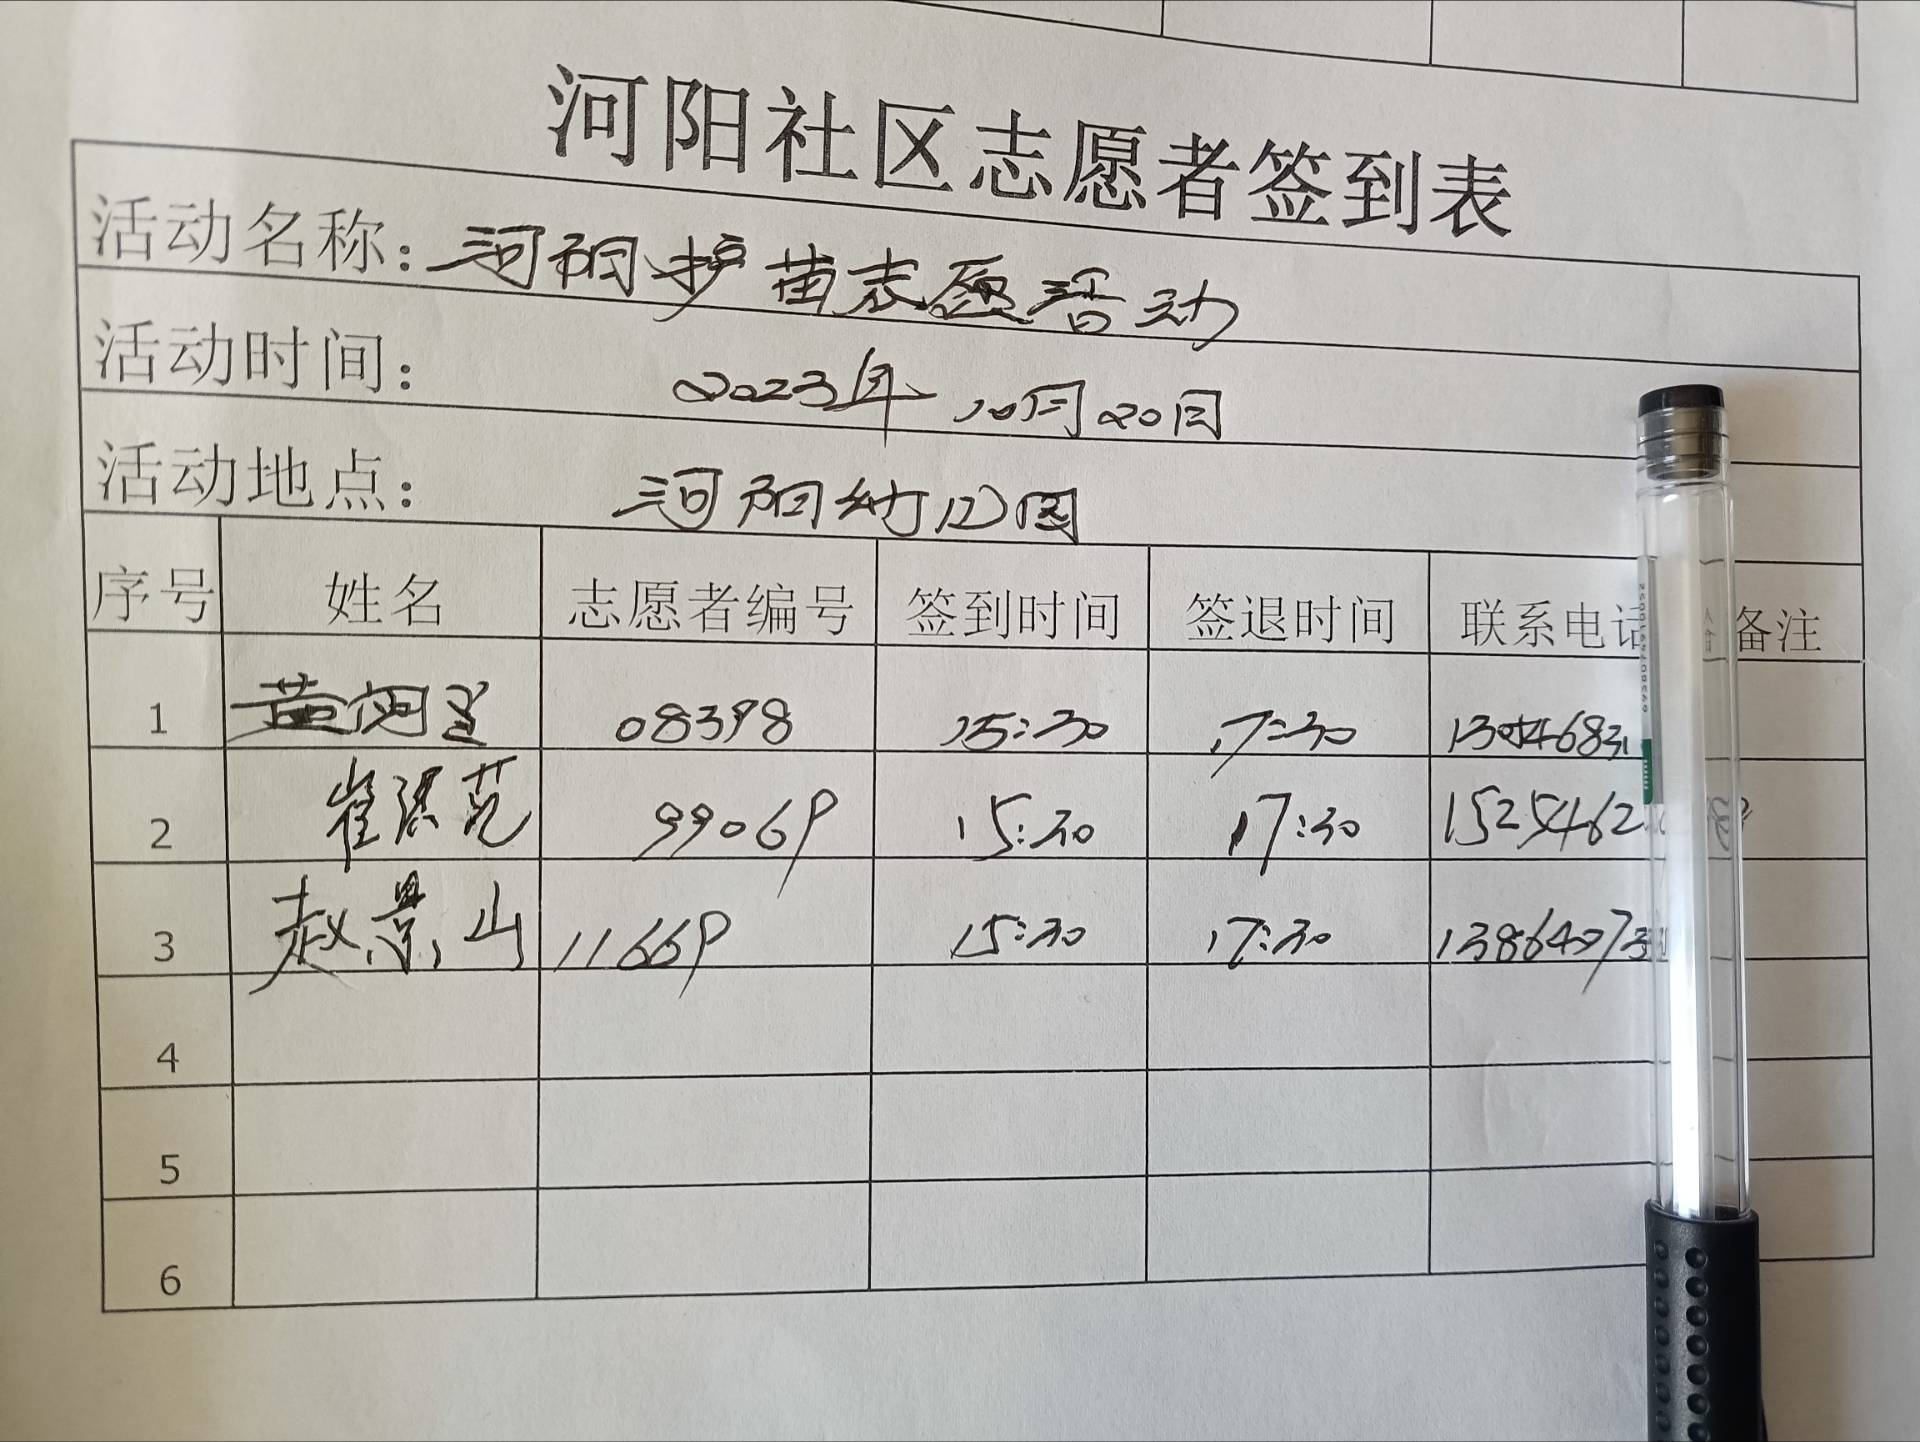 河阳社区志愿者签到表
活动名称：河阳护苗志愿活动
活动时间：2023年10月20日
活动地点：河阳幼儿园
序号 姓名 志愿者编号 签到时间 签退时间 联系电话 备注
1 08398 15:30 17:30
2 崔 99069 15:30 17:30 1525462
3 赵景山 11669 15:30 17:30 13864073
4
5
6